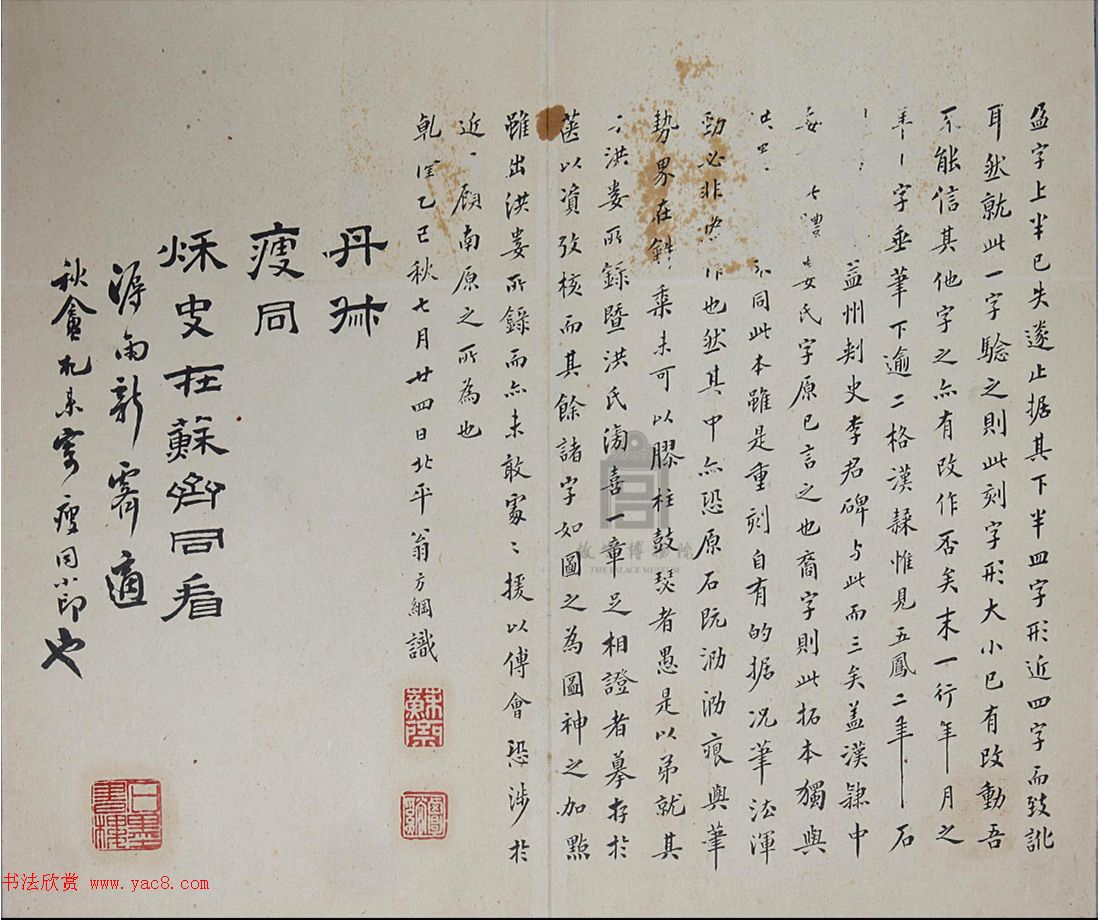 盈字上半已失遂止据其下半皿字形近四字而致訛
耳然就此一字驗之則此刻字形大小已有改動吾
不能信其他字之亦有改作否矣末一行年月之
年丨字垂筆下逾二格漢隸惟見五鳳二年石
益州刺史李君碑与此而三矣盖漢隸中
婁氏字原已言之也喬字則此拓本獨與
不同此本雖是重刻自有的据况筆法渾
勁必非 作也然其中亦恐原石阮泐泐痕與筆
勢界在 未可以膠柱鼓瑟者愚是以弟就其
于洪婁所錄暨洪氏 喜一章足相證者摹存於
篋以資攷核而其餘諸字如圖之為圖神之加點
雖出洪婁所錄而亦未敢處〻援以傅會恐涉於
近 顧南原之所為也
乾隆乙巳秋七月廿四日北平翁方綱識
丹叔
瘦同
穌史在蘇齋同看
潯南新霽適
秋盦札来寄瘦同小印也
蘇齋
石墨書樓
故宫博物院
THE PALACE MUSEUM
书法欣赏 www.yac8.com